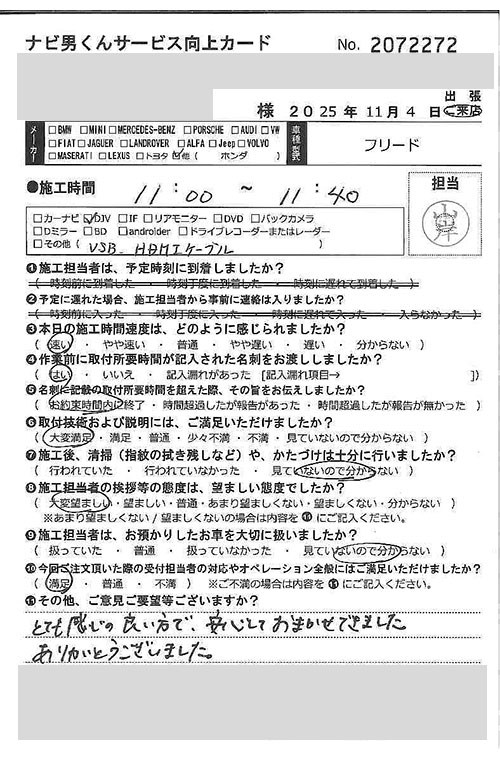 ナビ男くんサービス向上カード No. 2072272
出張
様 2025年 11月 4日 ・ご来店
メーカー □BMW □MINI □MERCEDES-BENZ □PORSCHE □AUDI □VW
□FIAT □JAGUER □LANDROVER □ALFA □Jeep □VOLVO
□MASERATI □LEXUS □トヨタ ☑他( ホンダ )
車種型式 フリード
●施工時間 11:00 ~ 11:40
担当
□カーナビ ☑DJV □IF □リアモニター □DVD □バックカメラ
□Dミラー □BD □androider □ドライブレコーダーまたはレーダー
□その他( USB、HDMIケーブル )
❶施工担当者は、予定時刻に到着しましたか?
( 時刻前に到着した ・ 時刻丁度に到着した ・ 時刻に遅れて到着した )
❷予定に遅れた場合、施工担当者から事前に連絡は入りましたか?
( 時刻前に入った ・ 時刻丁度に入った ・ 時刻に遅れて入った ・ 入らなかった )
❸本日の施工時間速度は、どのように感じられましたか?
( 速い ・ やや速い ・ 普通 ・ やや遅い ・ 遅い ・ 分からない )
❹作業前に取付所要時間が記入された名刺をお渡ししましたか?
( はい ・ いいえ ・ 記入漏れがあった [記入漏れ項目→ ])
❺名刺に記載の取付所要時間を超えた際、その旨をお伝えしましたか?
( お約束時間内に終了 ・ 時間超過したが報告があった ・ 時間超過したが報告が無かった )
❻取付技術および説明には、ご満足いただけましたか?
( 大変満足 ・ 満足 ・ 普通 ・ 少々不満 ・ 不満 ・ 見ていないので分からない )
❼施工後、清掃(指紋の拭き残しなど)や、かたづけは十分に行いましたか?
( 行われていた ・ 行われていなかった ・ 見ていないので分からない )
❽施工担当者の挨拶等の態度は、望ましい態度でしたか?
( 大変望ましい ・ 望ましい ・ 普通 ・ あまり望ましくない ・ 望ましくない ・ 分からない )
※あまり望ましくない / 望ましくないの場合は内容を⓫にご記入ください。
❾施工担当者は、お預かりしたお車を大切に扱いましたか?
( 扱っていた ・ 普通 ・ 扱っていなかった ・ 見ていないので分からない )
❿今回ご注文頂いた際の受付担当者の対応やオペレーション全般にはご満足いただけましたか?
( 満足 ・ 普通 ・ 不満 ) ※ご不満の場合は内容を⓫にご記入ください。
⓫その他、ご意見ご要望等ございますか?
とても感じの良い方で、安心しておまかせできました
ありがとうございました。